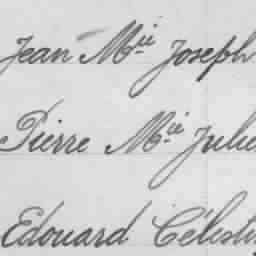 Jean Mie Joseph
Pierre Mie Julie
Edouard Célesti